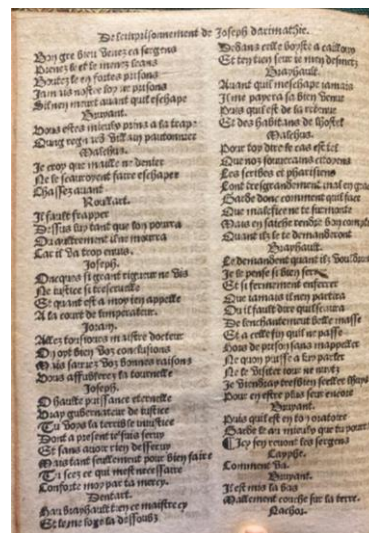 De lemprisonnement de Joseph darimathie.
Bon gre bieu venez ca sergens
Prenez le et le menez leans
Boutez le en fortes prisons
Jamais nostre loy ne
Silnen meurt auant quil eschape
Bruyant.
Vous estes mieulx prins a la trape
Quung regnard
Malchus.
Je croy que maille ne denier
Ne le scauroyent faire eschaper
Chassez auant
Roullart.
Il fault frapper
Dessus luy tant que lon pourra
Ou aultrement il ne mourra
Car il va trop enuis.
Joseph.
Oncques si grant rigueur ne vis
Ne iustice si
Et quant est a moy ien appelle
A la court de lempereur.
Joram.
Allez tousiours maistre docteur
On oyt bien voz conclusions
Mais sauriez voz bonnes raisons
Vous affublerez la tournelle
Joseph.
O haulte puissance eternelle
Vray gubernateur de iustice
Tu voys la terrible iniustice
Dont a present ie suis seruy
Et sans auoir rien desseruy
Mais tant seullement pour bien faire
Tu scez ce qui mest necessaire
Conforte moy par ta mercy.
Dentart.
Hau brayhault tien ce maistre cy
Et le me loge la dessoubz
Dedans celle boyste a cailloux
Et ten tien seur ie men desmetz
Brayhault.
Auant quil meschape iamais
Il me payera sa bien venue
Puis quil est de la retenue
Et des habitans de lhostel
Malchus.
Pour toy dire le cas est tel
Que noz souuerains citoyens
Les scribes et pharisiens
Lont tresgrandement mal en grace
Garde donc comment quil face
Que malefice ne te surmonte
Mais en sache rendre bon compte
Quant ilz le te demanderont
Brayhault.
Le demandent quant ilz vouldront
Je le pense si bien
Et si fermement enferrer
Que iamais il nen partira
Ou il fault dire quil scaura
De lenchantement belle masse
Et a celle fin quil ne passe
Hors de prison sans mappeller
Ne quon puisse a luy parler
Ne le visiter iour ne nuyt
Je viendray tresbien seeller lhuys
Pour en estre plus seur encore
Bruyant.
Puis quil est en ton oratoire
Garde le au mieulx que tu pourras
Icy sen reuont les sergens
Cayphe.
Comment va.
Bruyant.
Il est mis la bas
Mallement couche sur la terre.
Nachor.